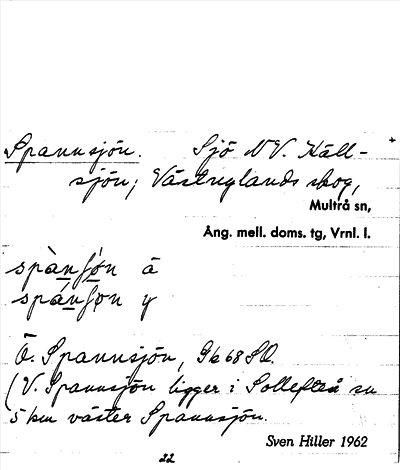 Spannsjön. Sjö NV. Häll-
sjön; Västnylands skog,
Multrå sn,
Ång. mell. doms. tg, Vrnl. l.
spànʃø̀n ä
spánʃøn y
Ö. Spannsjön, Gk 68 SO.
(V. Spannsjön ligger i Sollefteå sn
5 km väster Spannsjön.
Sven Hiller 1962
22